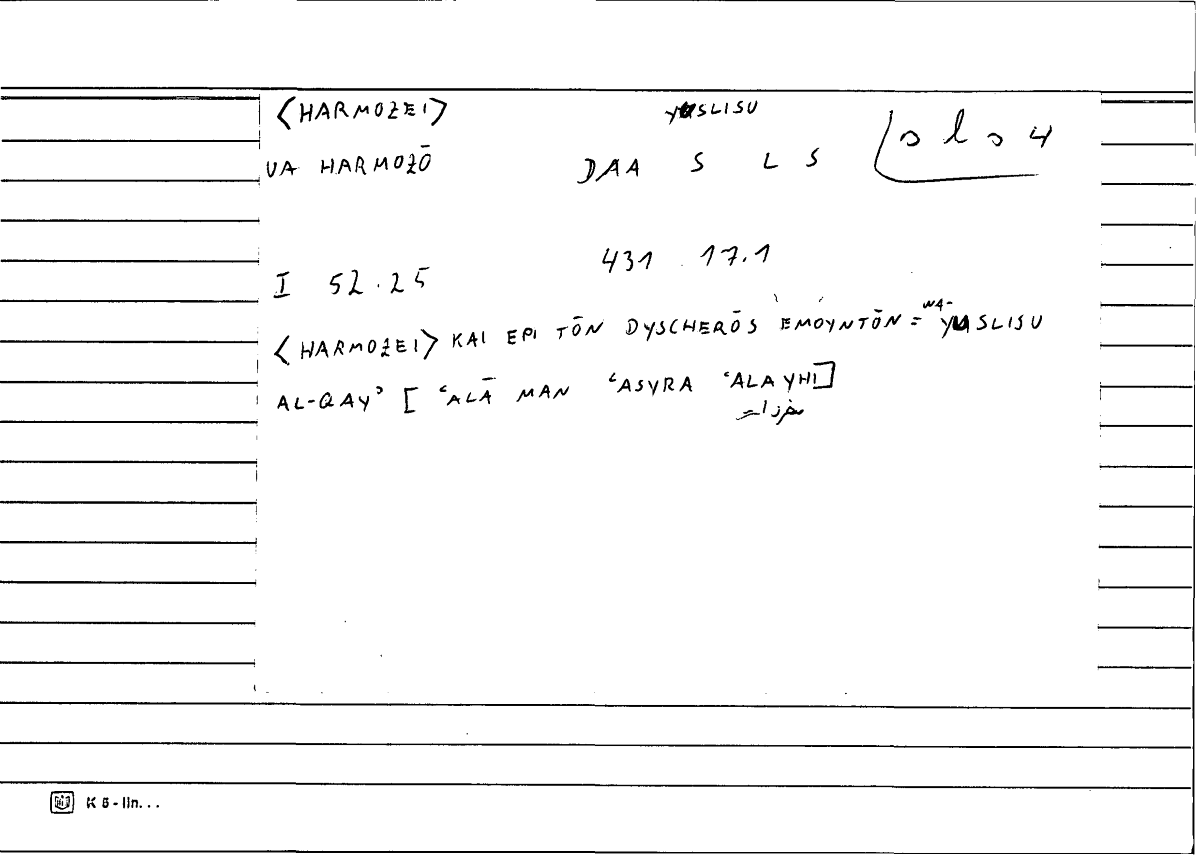 〈HARMOZEI〉 YUSLISU
UA HARMOZŌ DAA S L S
I 52.25 431 17.1
〈HARMOZEI〉 KAI EPI TŌN DYSCHERŌS EMOYNTŌN = WA- YUSLISU
AL-QAY' [ 'ALĀ MAN 'ASYRA 'ALAYHI]
K 5 - lin...